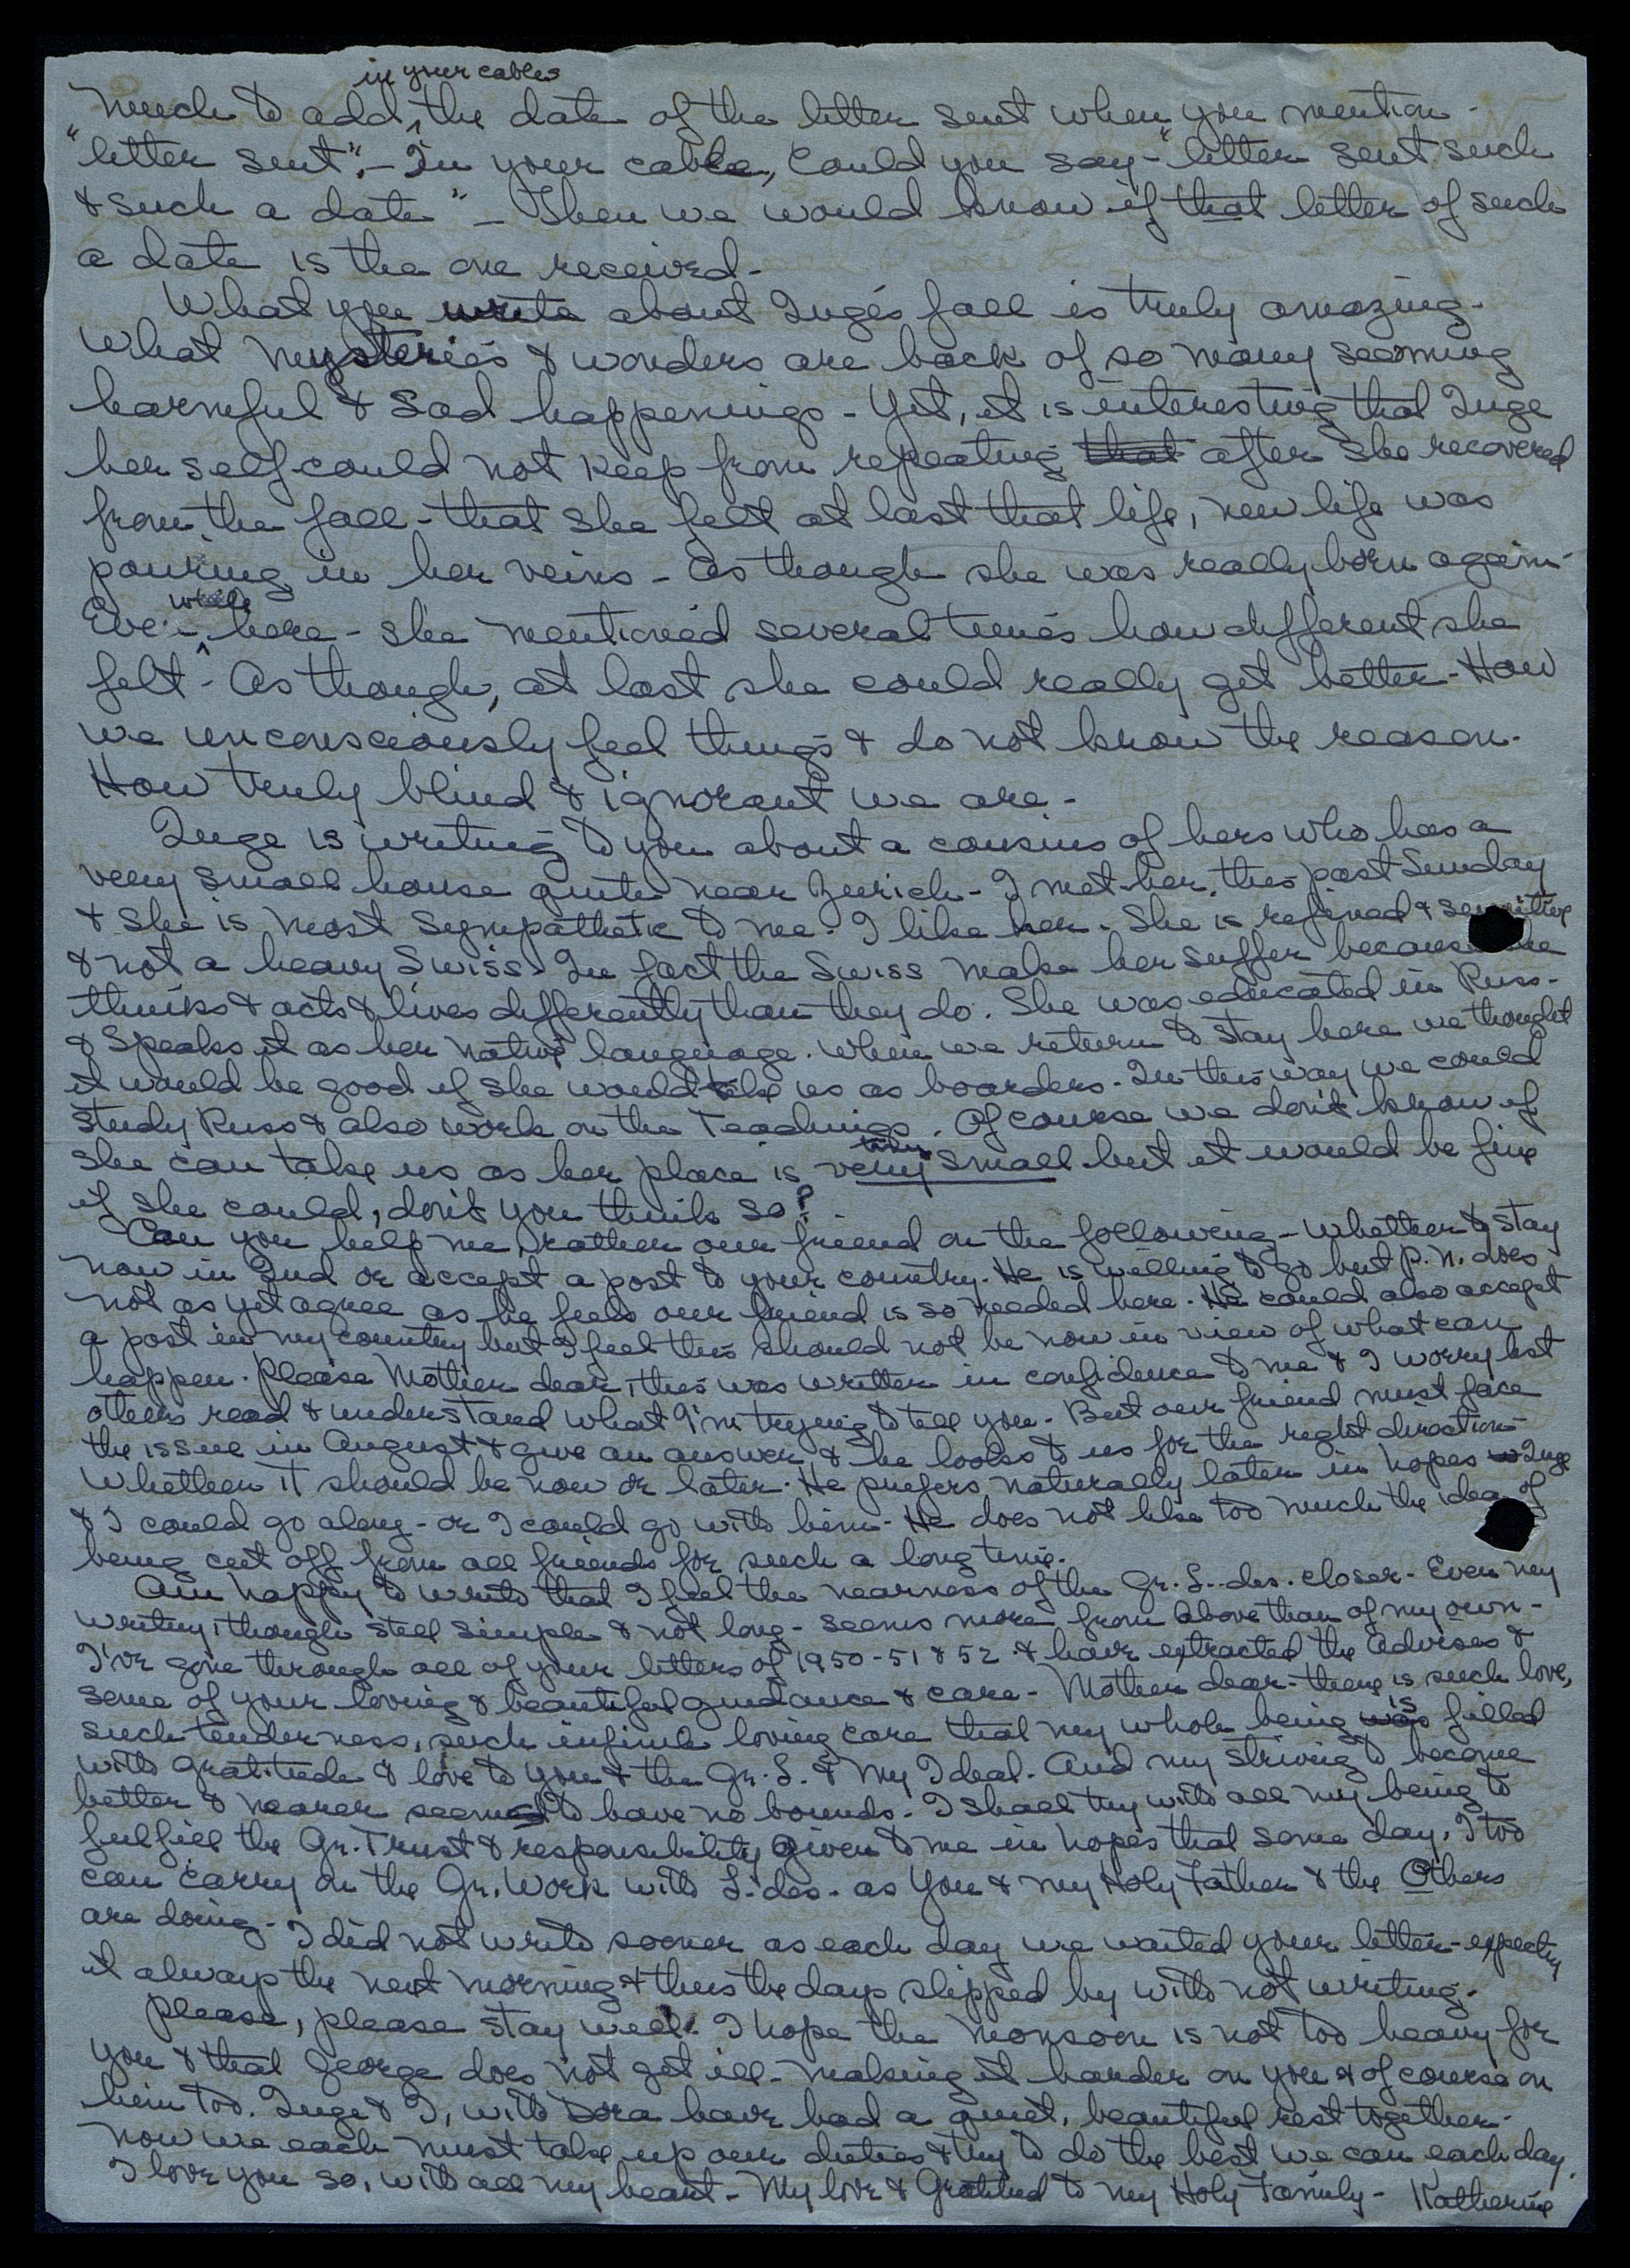 in your cables
much to add, the date of the letter sent when you mention -
"letter sent". - In your cable, could you say - "letter sent such
& such a date" - Then we would know if that letter of such
a date is the one received -
What you write about Inge's fall is truly amazing -
What mysteries & wonders are back of so many seeming
harmful & sad happenings - Yet, it is interesting that Inge
her self could not keep from repeating that after she recovered
from the fall - that she felt at last that life, new life was
pouring in her veins - As though she was really born again -
while
Even here - she mentioned several times how different she
felt - As though, at last she could really get better - How
we unconsciously feel things & do not know the reason -
How truly blind & ignorant we are -
Inge is writing to you about a cousins of hers who has a
very small house quite near Zurich - I met her, this past Sunday
& she is most sympathetic to me. I like her. She is refined & sensitive
& not a heavy Swiss. In fact the Swiss make her suffer because she
thinks & acts & lives differently than they do. She was educated in Russ -
& speaks it as her native language. When we return to stay here we thought
it would be good if she would take us as boarders. In this way we could
study Russ & also work on the Teachings. Of course we don't know if
she can take us as her place is very small but it would be fine
if she could, don't you think so?
Can you help me, rather our friend on the following - whether to stay
now in Ind or accept a post to your country. He is willing to go but P. N. does
not as yet agree as he feels our friend is so needed here. He could also accept
a post in my country but I feel this should not be now in view of what can
happen. Please Mother dear, this was written in confidence to me & I worry lest
others read & understand what I'm trying to tell you. But our friend must face
the issue in August & give an answer & he looks to us for the right direction -
Whether it should be now or later. He prefers, naturally later in hopes Inge
& I could go along - or I could go with him. He does not like too much the idea of
being cut off from all friends for such a long time.
Am happy to write that I feel the nearness of the Gr. L. des. closer - Even my
writing, though still simple & not long - seems more from above than of my own -
I've gone through all of your letters of 1950 - 51 & 52 & have extracted the Advises &
some of your loving & beautiful guidance & care - Mother dear - there is such love,
such tenderness, such infinite loving care that my whole being was is filled
with gratitude & love to you & the Gr. L. & My Ideal. And my striving to become
better & nearer seems to have no bounds. I shall try with all my being to
fulfill the Gr. Trust & responsibility given to me in hopes that some day, I too
can carry on the Gr. Work with L. des. as You & my Holy Father & the Others
are doing - I did not write sooner as each day we waited your letter - expecting
it always the next morning & thus the days slipped by with not writing.
Please, please stay well. I hope the monsoon is not too heavy for
you & that George does not get ill - making it harder on you & of course on
him too. Inge & I, with Dora have had a quiet, beautiful rest together.
Now we each must take up our duties & try to do the best we can each day.
I love you so, with all my heart - My love & Gratitud to my Holy Family - Katherine